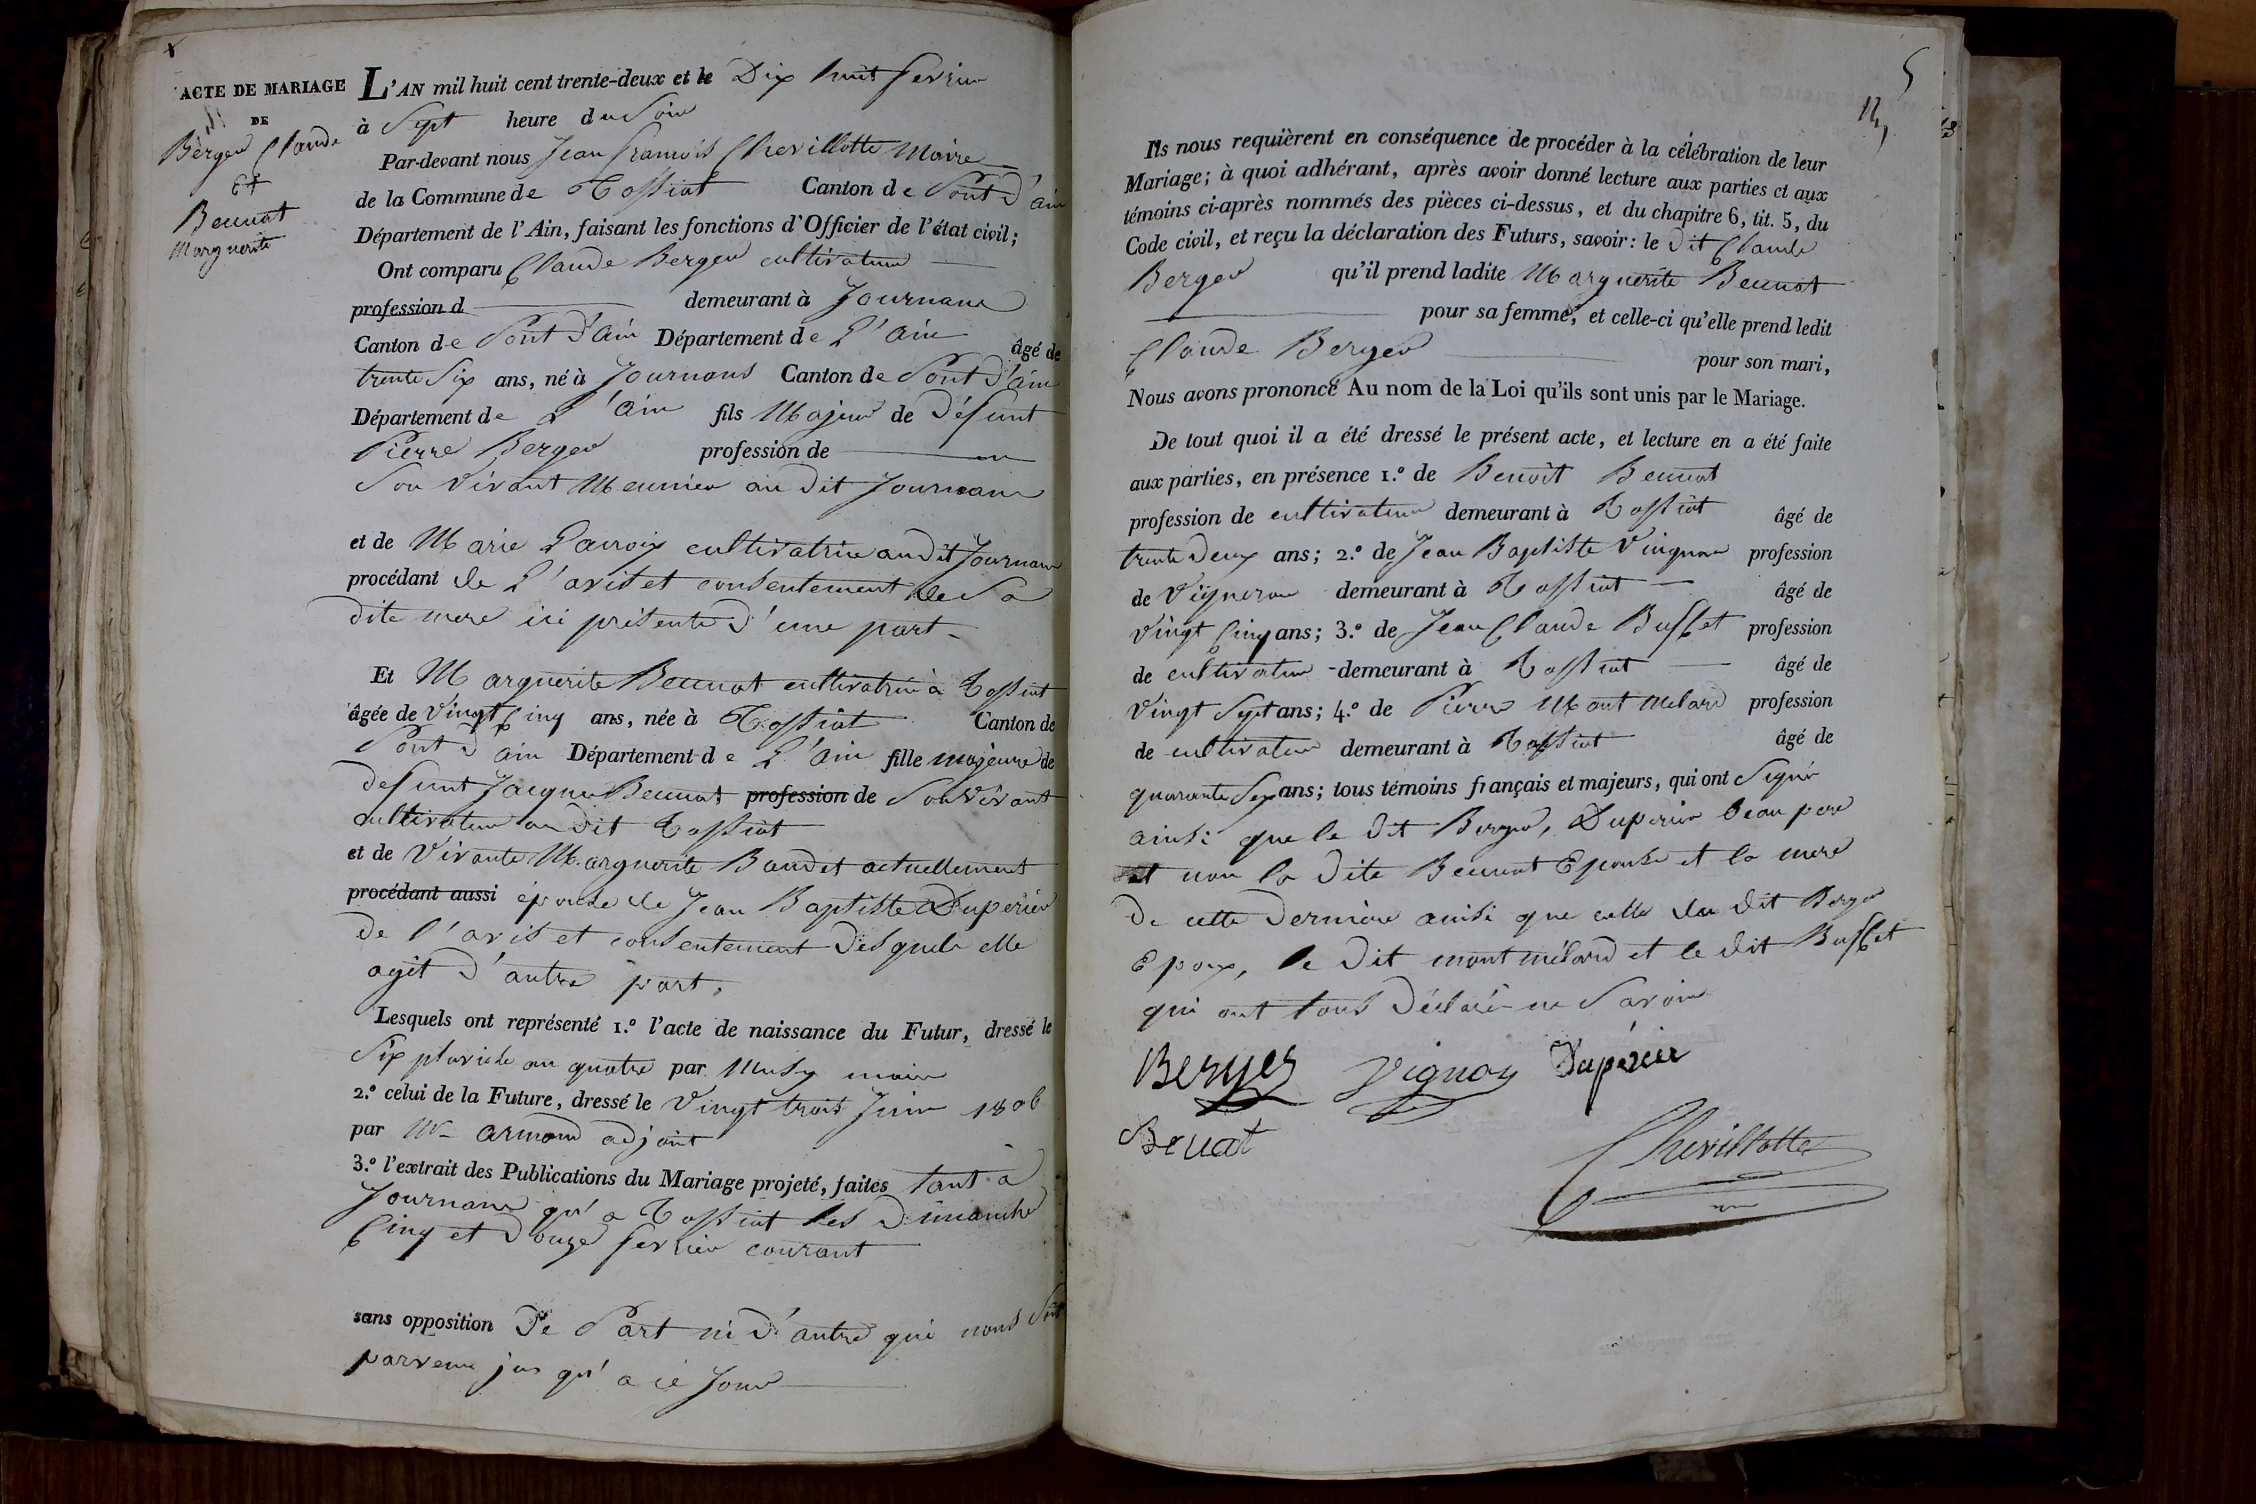 ACTE DE MARIAGE
DE
Berger Claude
Et
Beunat
Marguerite
L'AN mil huit cent trente-deux et le Dix huit fevrier
à Sept heure du Soir
Par-devant nous Jean françois Chevillotte Maire
de la Commune de Tossiat Canton de Pont d'ain
Département de l'Ain, faisant les fonctions d'Officier de l'état civil;
Ont comparu Claude Berger cultivateur
profession d demeurant à Journans
Canton de Pont d'ain Département de L'ain âgé de
trente Six ans, né à Journans Canton de Pont d'ain
Département de L'ain fils Majeur de Défunt
Pierre Berger profession de
Son Vivant Meunier au dit Journans
et de Marie Lacroix cultivatrice au dit Journans
procédant de L'avis et consentement de Sa
dite mere ici présente d'une part
Et Marguerite Beunat cultivatrice à Tossiat
âgée de Vingt Cinq ans, née à Tossiat Canton de
Pont d'ain Département de L'ain fille majeure de
defunt Jacque Beunat profession de Son Vivant
cultivateur au dit Tossiat
et de Vivante Marguerite Baudet actuellement
procédant aussi épouse de Jean Baptiste Dupérier
de l'avis et consentement desquels elle
agit d'autre part.
Lesquels ont représenté 1.º l'acte de naissance du Futur, dressé le
Six pluviose an quatre par Musy maire
2.º celui de la Future, dressé le Vingt trois Juin 1806
par Mr armand adjoint
3.º l'extrait des Publications du Mariage projeté, faites tant à
Journans qu'a Tossiat les dimanche
Cinq et Douze fevrier courant
sans opposition de Part ni d'autre qui nous Soit
parvenu jus qu'a ce Jour
5
Ils nous requièrent en conséquence de procéder à la célébration de leur
Mariage; à quoi adhérant, après avoir donné lecture aux parties et aux
témoins ci-après nommés des pièces ci-dessus, et du chapitre 6, tit. 5, du
Code civil, et reçu la déclaration des Futurs, savoir: le dit Claude
Berger qu'il prend ladite Marguerite Beunat
pour sa femme, et celle-ci qu'elle prend ledit
Claude Berger pour son mari,
Nous avons prononcé Au nom de la Loi qu'ils sont unis par le Mariage.
De tout quoi il a été dressé le présent acte, et lecture en a été faite
aux parties, en présence 1.º de Benoit Beunat
profession de cultivateur demeurant à Tossiat âgé de
trente deux ans; 2.º de Jean Baptiste Vingnon profession
de Vigneron demeurant à Tossiat âgé de
Vingt Cinq ans; 3.º de Jean Claude Buffet profession
de cultivateur demeurant à Tossiat âgé de
Vingt Sept ans; 4.º de Pierre Mont Mélard profession
de cultivateur demeurant à Tossiat âgé de
quarante ans; tous témoins français et majeurs, qui ont Signé
ainsi que le dit Berger, Duperier beau pere
et non la dite Beunat Epouse et la mere
de cette derniere ainsi que celle du dit Berger
Epoux, le dit mont mélard et le dit Buffet
qui ont tous déclaré ne Savoir
Berger Vignon Dupérier
Beuat
Chevillotte